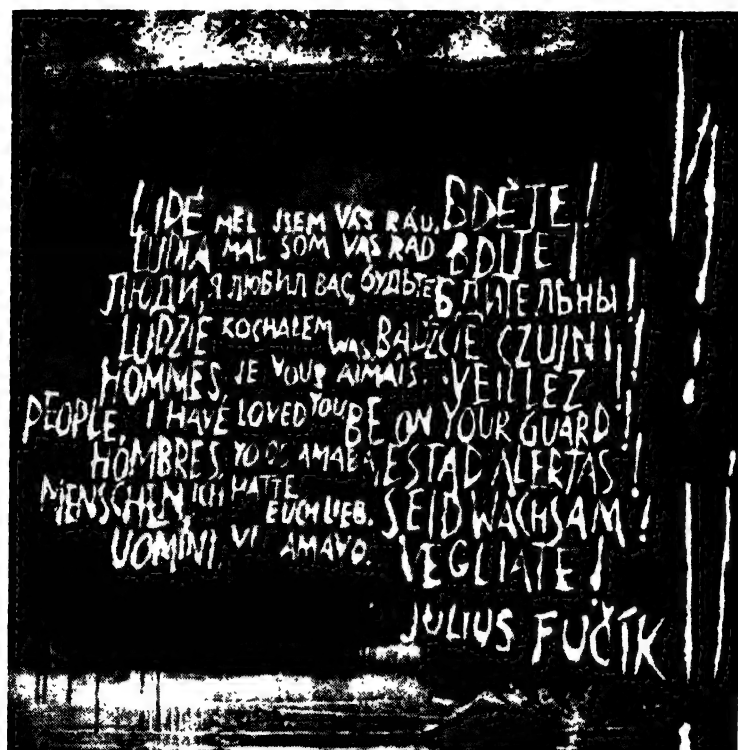 LIDÉ MĚL JSEM VÁS RÁD, BDĚTE!
ĽUDIA MAL SOM VAS RAD BDIJTE!
ЛЮДИ, Я ЛЮБИЛ ВАС, БУДЬТЕ БДИТЕЛЬНЫ!
LUDZIE KOCHAŁEM WAS BĄDŹCIE CZUJNI!
HOMMES, JE VOUS AIMAIS. VEILLEZ!
PEOPLE, I HAVE LOVED YOU BE ON YOUR GUARD!
HOMBRES, YO OS AMABA, ESTAD ALERTAS!
MENSCHEN, ICH HATTE EUCH LIEB. SEID WACHSAM!
UOMINI, VI AMAVO. VEGLIATE!
JULIUS FUČÍK